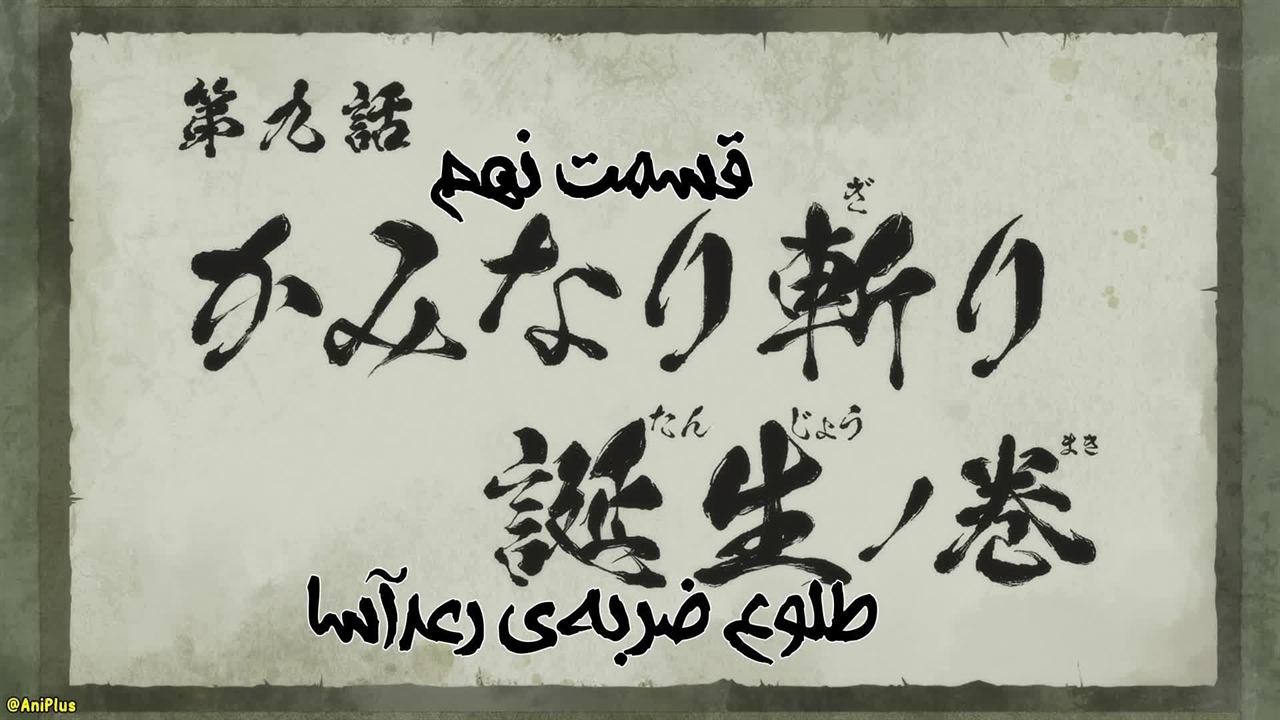 第九話
قسمت نهم
かみなり斬り
ざ
誕生ノ巻
たんじょう まき
طلوع ضربه‌ی رعدآسا
@AniPlus